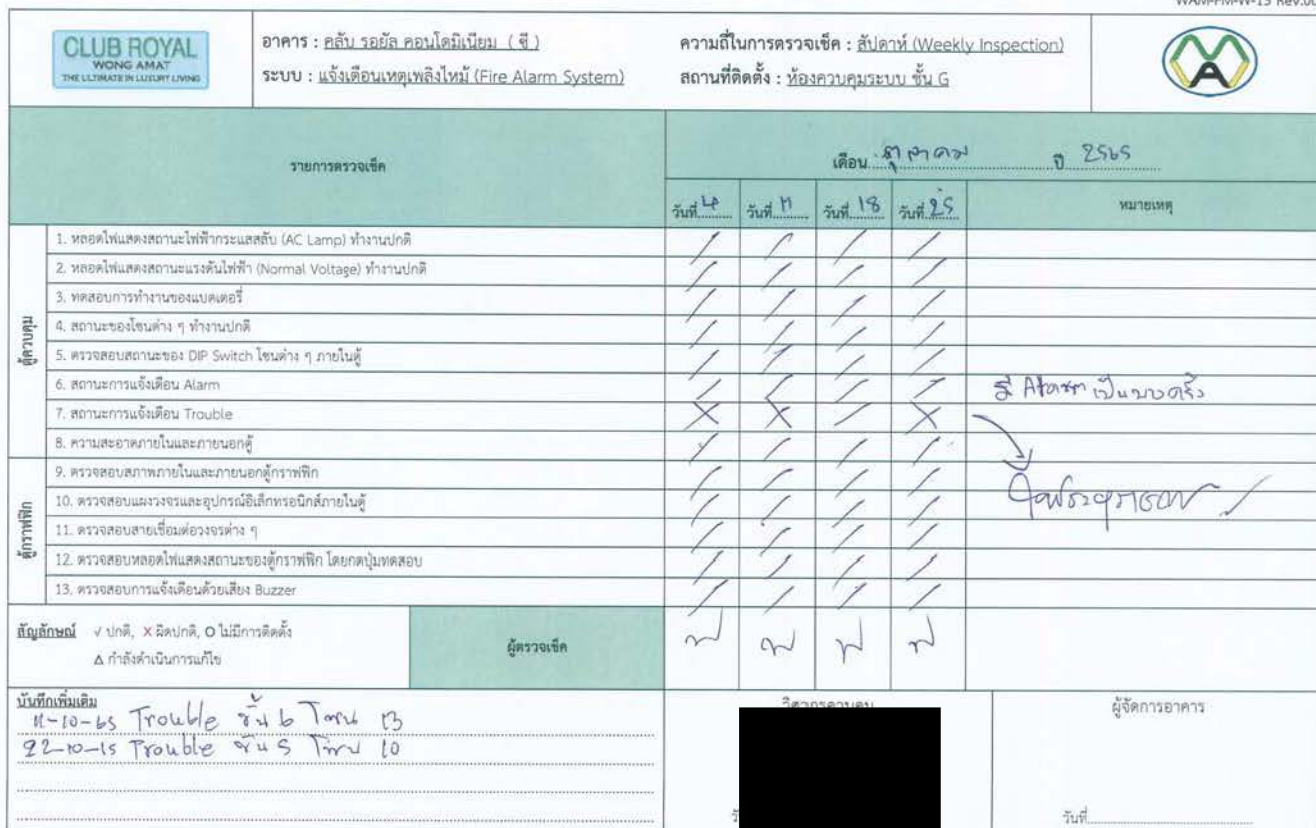 WAM-FM-W-13 Rev.00
CLUB ROYAL
WONG AMAT
THE ULTIMATE IN LUXURY LIVING
อาคาร : คลับ รอยัล คอนโดมิเนียม ( ซี )
ระบบ : แจ้งเตือนเหตุเพลิงไหม้ (Fire Alarm System)
ความถี่ในการตรวจเช็ค : สัปดาห์ (Weekly Inspection)
สถานที่ติดตั้ง : ห้องควบคุมระบบ ชั้น G
รายการตรวจเช็ค
เดือน ตุลาคม ปี 2565
วันที่ 4 วันที่ 11 วันที่ 18 วันที่ 25 หมายเหตุ
ตู้ควบคุม
1. หลอดไฟแสดงสถานะไฟฟ้ากระแสสลับ (AC Lamp) ทำงานปกติ / / / /
2. หลอดไฟแสดงสถานะแรงดันไฟฟ้า (Normal Voltage) ทำงานปกติ / / / /
3. ทดสอบการทำงานของแบตเตอรี่ / / / /
4. สถานะของโซนต่าง ๆ ทำงานปกติ / / / /
5. ตรวจสอบสถานะของ DIP Switch โซนต่าง ๆ ภายในตู้ / / / /
6. สถานะการแจ้งเตือน Alarm / / / / มี Alarm เป็นบางครั้ง
7. สถานะการแจ้งเตือน Trouble X X / X
8. ความสะอาดภายในและภายนอกตู้ / / / /
ตู้กราฟฟิก
9. ตรวจสอบสภาพภายในและภายนอกตู้กราฟฟิก / / / /
10. ตรวจสอบแผงวงจรและอุปกรณ์อิเล็กทรอนิกส์ภายในตู้ / / / /
11. ตรวจสอบสายเชื่อมต่อวงจรต่าง ๆ / / / /
12. ตรวจสอบหลอดไฟแสดงสถานะของตู้กราฟฟิก โดยกดปุ่มทดสอบ / / / /
13. ตรวจสอบการแจ้งเตือนด้วยเสียง Buzzer / / / /
สัญลักษณ์ √ ปกติ, X ผิดปกติ, O ไม่มีการติดตั้ง
Δ กำลังดำเนินการแก้ไข
ผู้ตรวจเช็ค
บันทึกเพิ่มเติม
11-10-65 Trouble ชั้น 6 โซน 13
22-10-65 Trouble ชั้น 5 โซน 10
วิศวกรควบคุม
ผู้จัดการอาคาร
วันที่